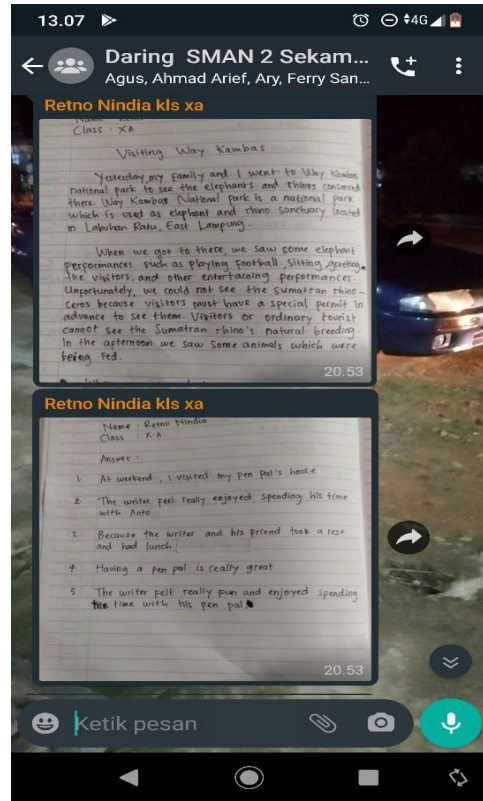 13.07
4G
Daring SMAN 2 Sekam...
Agus, Ahmad Arief, Ary, Ferry San...
Retno Nindia kls xa
Class : XA
Visiting Way Kambas
Yesterday, my family and I went to Way Kambas
national park to see the elephants and rhinos conserved
there. Way Kambas National park is a national park
which is used as elephant and rhino sanctuary located
in Labuhan Ratu, East Lampung.
When we got to there, we saw some elephant
performances such as playing football, sitting, greeting
the visitors, and other entertaining performances.
Unfortunately, we could not see the Sumatran rhino-
ceros because visitors must have a special permit in
advance to see them. Visitors or ordinary tourist
cannot see the Sumatran rhino's natural breeding.
In the apternoon we saw some animals which were
being Fed.
20.53
Retno Nindia kls xa
Name : Retno Nindia
Class : X-A
Answer :
1. At weekend, I visited my pen pal's house
2. The writer feel really enjoyed spending his time
with Anto
3. Because the writer and his friend took a rest
and had lunch
4. Having a pen pal is really great
5. The writer felt really fun and enjoyed spending
the time with his pen pal.
20.53
Ketik pesan